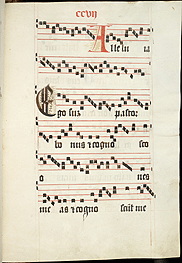 ccvij
Alle lu ia
Ego sum pastor
bo nus & cogno sco
o nes
me as & cogno scūt me